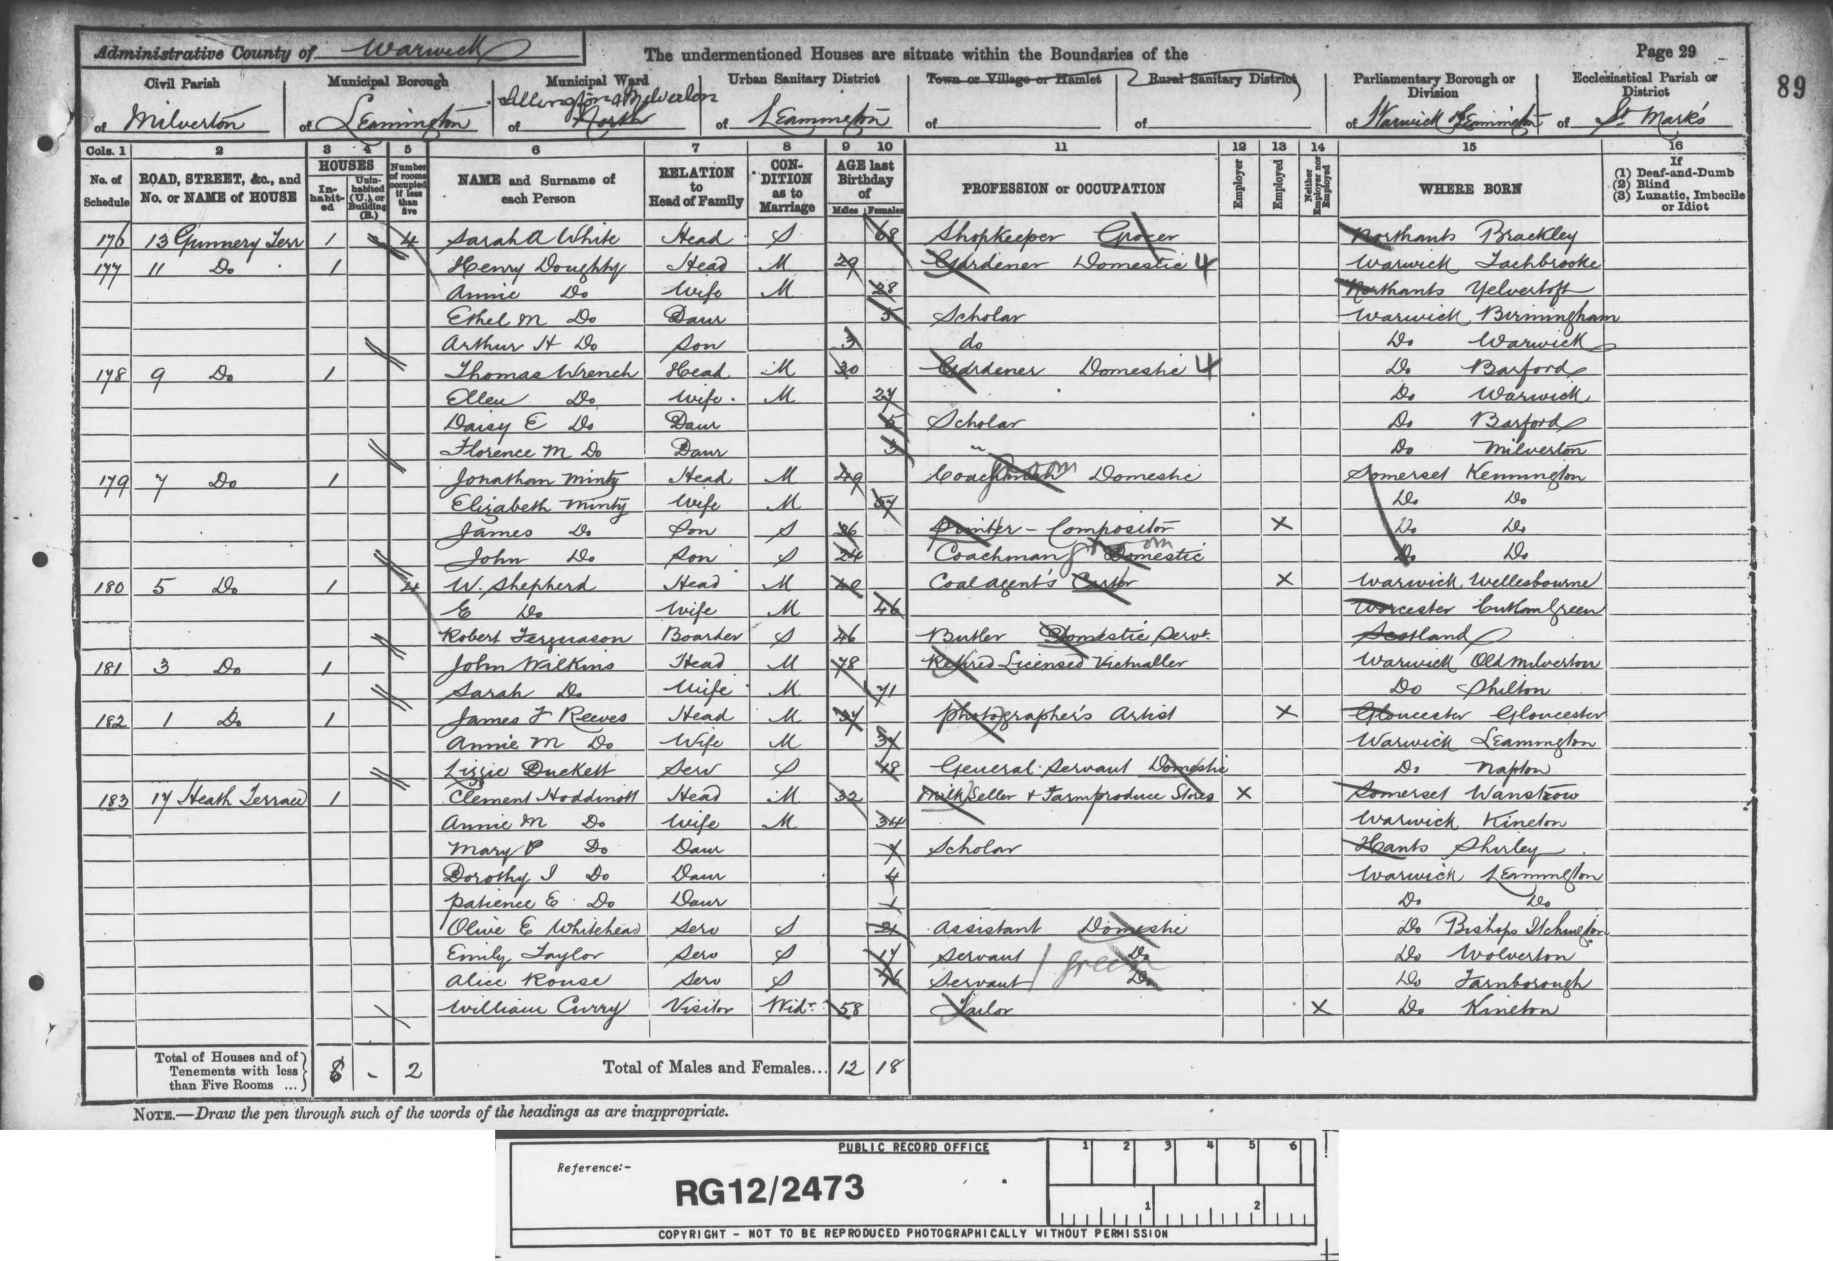 Administrative County of Warwick The undermentioned Houses are situate within the Boundaries of the Page 29
89
Civil Parish Municipal Borough Municipal Ward Urban Sanitary District Town or Village or Hamlet Rural Sanitary District Parliamentary Borough or Division Ecclesiastical Parish or District
of Milverton of Leamington of Milverton North of Leamington of of of Warwick & Leamington of St Mark's
Cols. 1 2 3 4 5 6 7 8 9 10 11 12 13 14 15 16
No. of Schedule ROAD, STREET, &c., and No. or NAME of HOUSE HOUSES Inhabited Uninhabited (U.) or Building (B.) Number of rooms occupied if less than five NAME and Surname of each Person RELATION to Head of Family CONDITION as to Marriage AGE last Birthday of Males Females PROFESSION or OCCUPATION Employer Employed Neither Employer nor Employed WHERE BORN If (1) Deaf-and-Dumb (2) Blind (3) Lunatic, Imbecile or Idiot
176 13 Gunnery Terr 1 4 Sarah A White Head S 68 Shopkeeper Grocer Northants Brackley
177 11 Do 1 Henry Doughty Head M 29 Gardener Domestic 4 Warwick Tachbrooke
Annie Do Wife M 28 Northants Yelvertoft
Ethel M Do Daur 5 Scholar Warwick Birmingham
Arthur H Do Son 3 do Do Warwick
178 9 Do 1 Thomas Wrench Head M 30 Gardener Domestic 4 Do Barford
Ellen Do Wife M 27 Do Warwick
Daisy E Do Daur 5 Scholar Do Barford
Florence M Do Daur 3 " Do Milverton
179 7 Do 1 Jonathan Minty Head M 49 Coachman Groom Domestic Somerset Kennington
Elizabeth Minty Wife M 57 Do Do
James Do Son S 26 Printer - Compositor X Do Do
John Do Son S 24 Coachman Groom Domestic Do Do
180 5 Do 1 4 W. Shepherd Head M 40 Coal agent's Carter X Warwick Wellesbourne
E Do Wife M 46 Worcester Green
Robert Ferguason Boarder S 46 Butler Domestic Servt. Scotland
181 3 Do 1 John Wilkins Head M 78 Retired Licensed Victualler Warwick Old Milverton
Sarah Do Wife M 71 Do Shilton
182 1 Do 1 James F Reeves Head M 37 Photographer's Artist X Gloucester Gloucester
Annie M Do Wife M 37 Warwick Leamington
Lizzie Duckett Serv S 18 General Servant Domestic Do Napton
183 17 Heath Terrace 1 Clement Hoddinott Head M 32 Milk Seller & Farm produce Stores X Somerset Wanstrow
Annie M Do Wife M 34 Warwick Kineton
Mary P Do Daur Scholar Hants Shirley
Dorothy I Do Daur 4 Warwick Leamington
Patience E Do Daur 1 Do Do
Olive E Whitehead Serv S 21 Assistant Domestic Do Bishops Itchington
Emily Taylor Serv S 17 Servant Do Do Wolverton
Alice Rouse Serv S 16 Servant Do Do Farnborough
William Curry Visitor Widr 58 Tailor X Do Kineton
Total of Houses and of Tenements with less than Five Rooms ... 8 - 2 Total of Males and Females... 12 18
NOTE.—Draw the pen through such of the words of the headings as are inappropriate.
PUBLIC RECORD OFFICE 1 2 3 4 5 6
Reference:-
RG12/2473
1 2
COPYRIGHT - NOT TO BE REPRODUCED PHOTOGRAPHICALLY WITHOUT PERMISSION